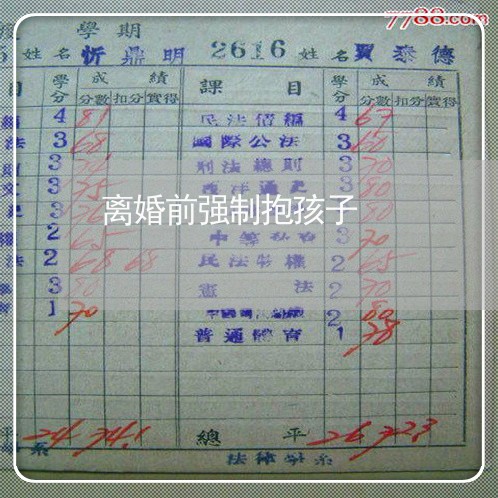 7788.com
學 期
姓 名 忻鼎明 2616 姓 名 賈泰德
目 學分 成 績 課 目 學分 成 績
分數 扣分 實得 分數 扣分 實得
4 81 民法債編 4 67
法 3 68 國際公法 3 60
3 刑法總則 3 70
3 75 西洋通史 3 80
3 80
2 65 3 70
法 2 68 68 民法物權 2 65
3 80 憲 法 2 70
1 70 2 80
普通體育 1 78
离婚前强制抱孩子
平 24 74.1 總 平 26 72.3
系 法律學系